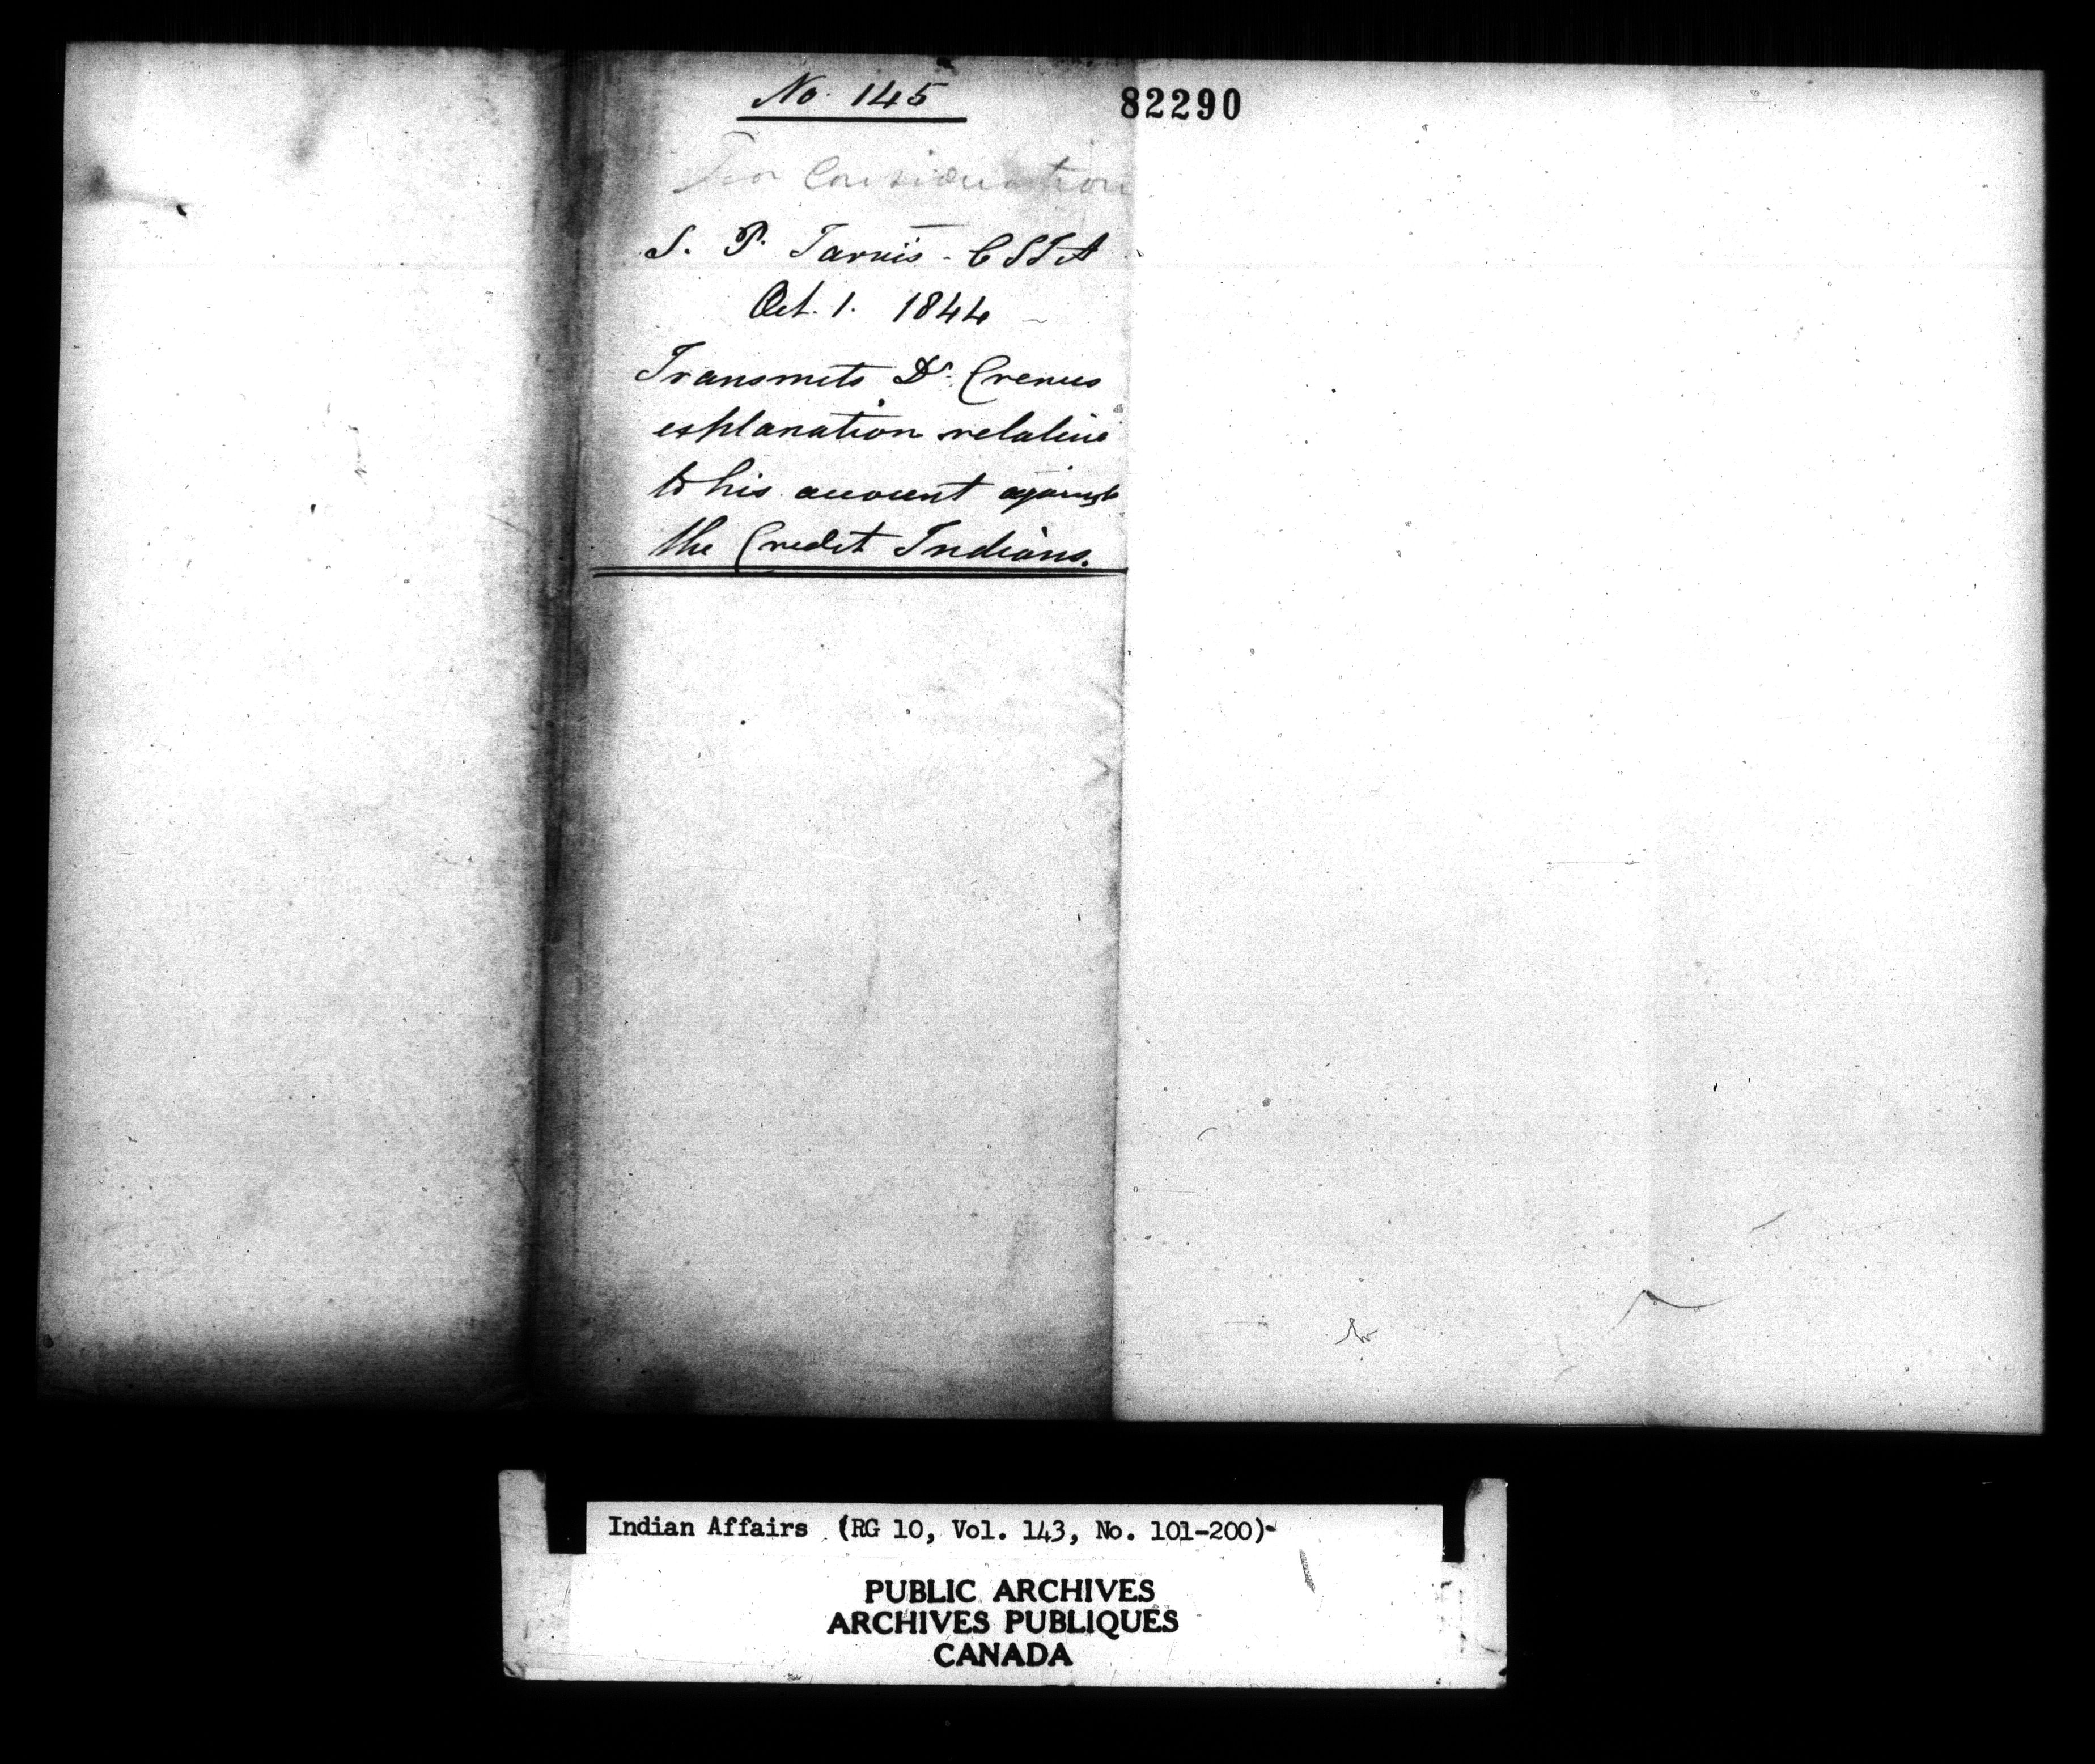 No. 145
82290
For Consideration
S. P. Jarvis - C S I A
Oct. 1. 1844
Transmits Dr. Crewes
explanation relative
to his account against
the Credit Indians.
Indian Affairs (RG 10, Vol. 143, No. 101-200)
PUBLIC ARCHIVES
ARCHIVES PUBLIQUES
CANADA